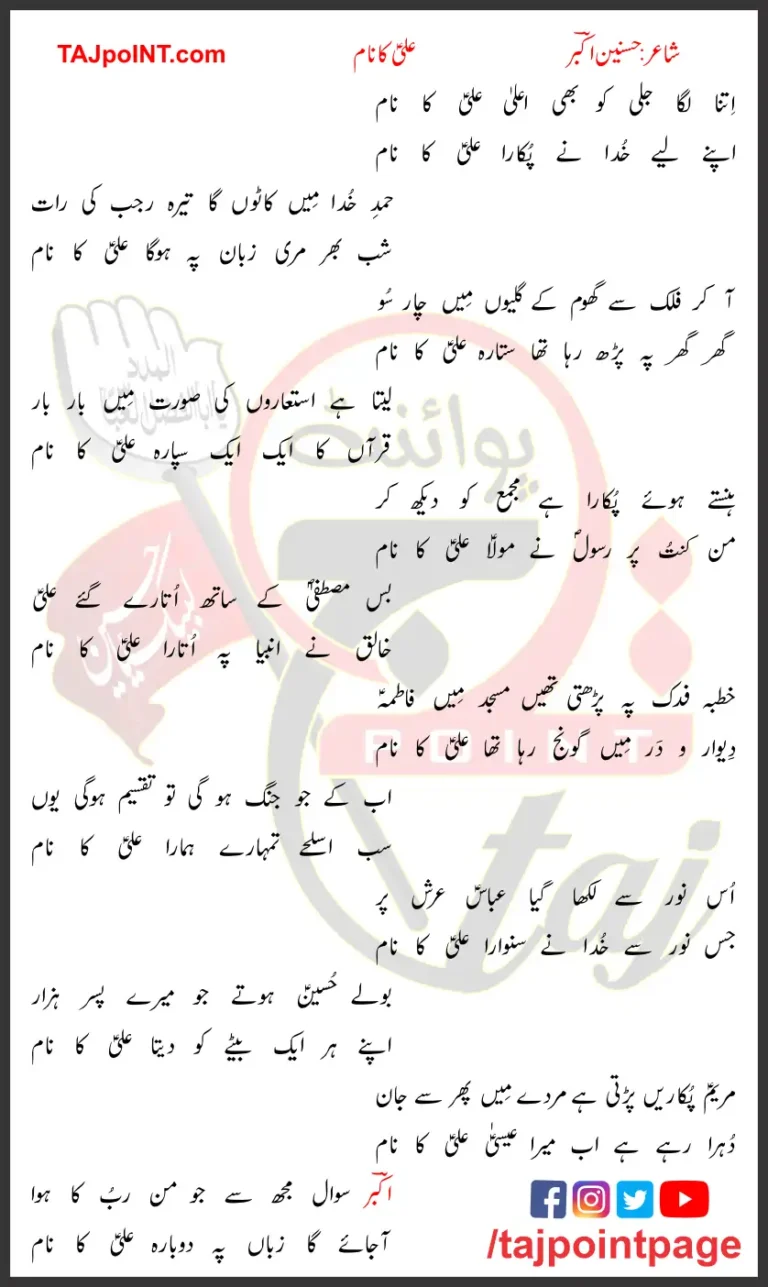 شاعر: حسنین اکبؔر علیؑ کا نام TAJpoINT.com
اِتنا لگا جلی کو بھی اعلیٰ علیؑ کا نام
اپنے لیے خُدا نے پُکارا علیؑ کا نام
حمدِ خُدا مِیں کاٹوں گا تیرہ رجب کی رات
شب بھر مری زبان پہ ہوگا علیؑ کا نام
آ کر فلک سے گھوم کے گلیوں مِیں چار سُو
گھر گھر پہ پڑھ رہا تھا ستارہ علیؑ کا نام
لیتا ہے استعاروں کی صورت مِیں بار بار
قرآں کا ایک ایک سپارہ علیؑ کا نام
ہنستے ہوئے پُکارا ہے مجمع کو دیکھ کر
من کنتُ پر رسولؐ نے مولاؑ علیؑ کا نام
بس مصطفیٰؐ کے ساتھ اُتارے گئے علیؑ
خالق نے انبیا پہ اُتارا علیؑ کا نام
خطبہ فدک پہ پڑھتی تھیں مسجد مِیں فاطمہؑ
دِیوار و دَر مِیں گونج رہا تھا علیؑ کا نام
اب کے جو جنگ ہو گی تو تقسیم ہوگی یوں
سب اسلحے تمہارے ہمارا علیؑ کا نام
اُس نور سے لکھا گیا عباسؑ عرش پر
جس نور سے خُدا نے سنوارا علیؑ کا نام
بولے حُسینؑ ہوتے جو میرے پسر ہزار
اپنے ہر ایک بیٹے کو دیتا علیؑ کا نام
مریمؑ پُکاریں پڑتی ہے مردے مِیں پھر سے جان
دُہرا رہے ہے اب میرا عیسیٰؑ علیؑ کا نام
اکبؔر سوال مجھ سے جو من ربُ کا ہوا
آجائے گا زباں پہ دوبارہ علیؑ کا نام
/tajpointpage
المدد
یا اباالفضل العباسؑ
لبیک یا حسین
پوائنٹ
تاج
POINT
taj